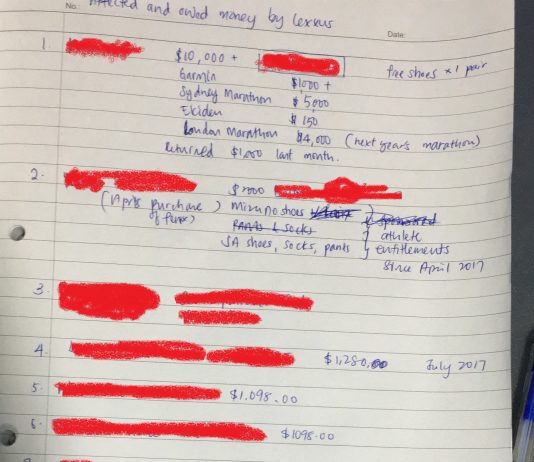 No.:
Affected and owed money by Lexxus
Date:
1. $10,000 + free shoes x 1 pair
Garmin $1000 +
Sydney Marathon $5,000
Ekiden $150
London Marathon $4,000 (next year's marathon)
Returned $1,000 last month.
2. $ 7000
purchase) Mizuno shoes sponsored
Pants & socks athlete
SA shoes, socks, pants entitlements
Since April 2017
3.
4. $1,280.00 July 2017
5. $1,098.00
6. $1098.00